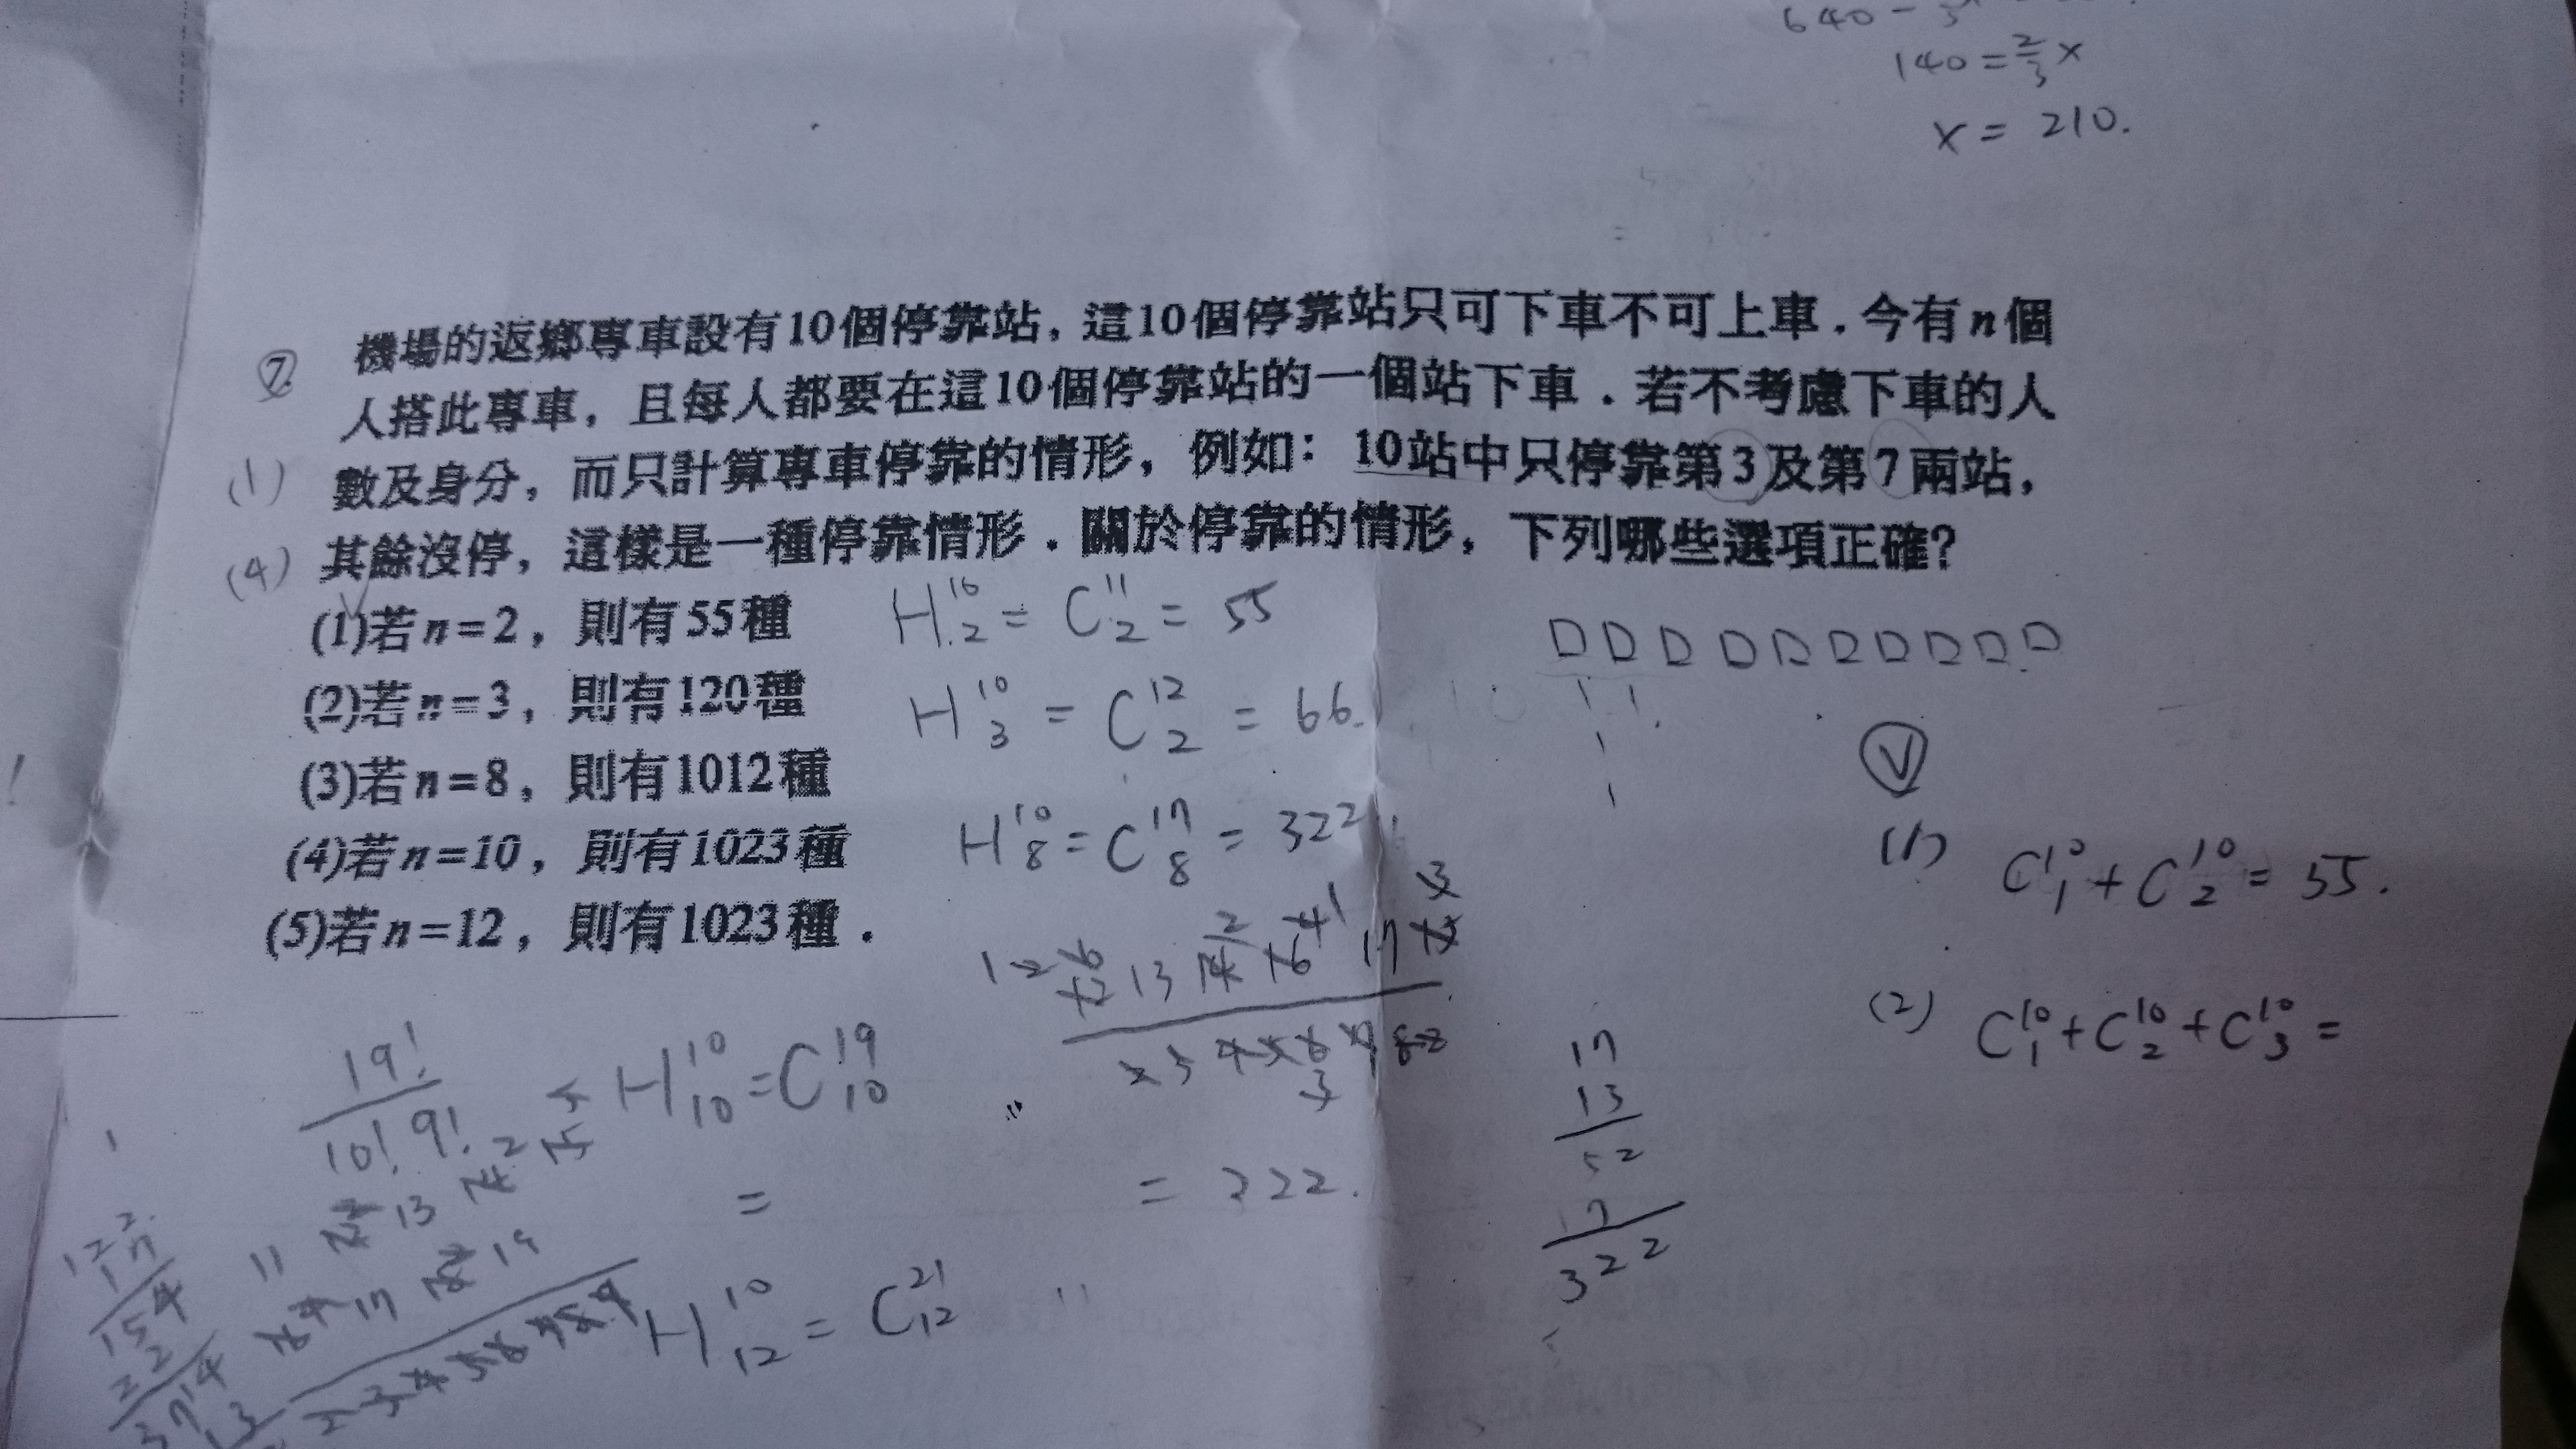 640 - 3
140 = 2/3 x
x = 210.
⑦ 機場的返鄉專車設有10個停靠站，這10個停靠站只可下車不可上車．今有n個
人搭此專車，且每人都要在這10個停靠站的一個站下車．若不考慮下車的人
(1) 數及身分，而只計算專車停靠的情形，例如：10站中只停靠第3及第7兩站，
(4) 其餘沒停，這樣是一種停靠情形．關於停靠的情形，下列哪些選項正確？
(1)若n=2，則有55種
H^10_2 = C^11_2 = 55
(2)若n=3，則有120種
H^10_3 = C^12_2 = 66.
(3)若n=8，則有1012種
H^10_8 = C^17_8 = 322
(4)若n=10，則有1023種
(5)若n=12，則有1023種．
Ⓥ
(1) C^10_1 + C^10_2 = 55.
(2) C^10_1 + C^10_2 + C^10_3 =
19!
10! 9!
H^10_10 = C^19_10
=
= 322.
17
13
52
17
322
H^10_12 = C^21_12